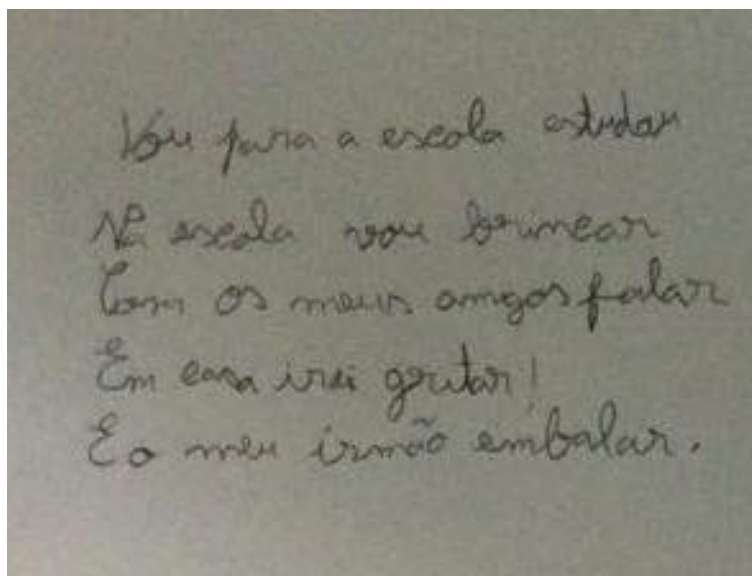 Vou para a escola estudar
Na escola vou brincar
Com os meus amigos falar
Em casa irei gritar!
E o meu irmão embalar.